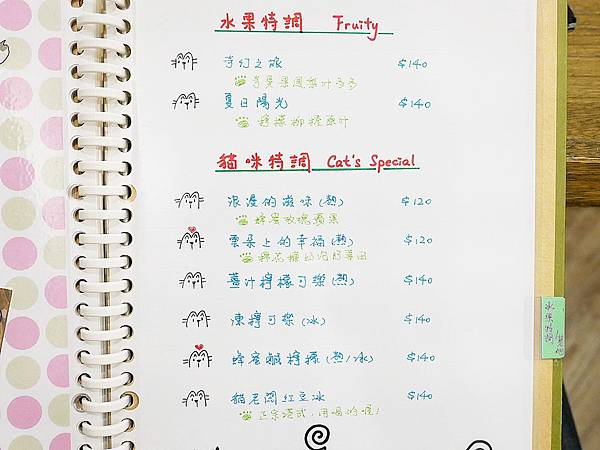 水果特調 Fruity
奇幻之旅 $140
奇異果鳳梨汁多多
夏日陽光 $140
檸檬柳橙原汁
貓咪特調 Cat's Special
浪漫的滋味(熱) $120
蜂蜜玫瑰蘋果
雲朵上的幸福(熱) $120
棉花糖
薑汁檸檬可樂(熱) $140
凍檸可樂(冰) $140
蜂蜜鹹檸檬(熱/冰) $140
貓老闆紅豆冰 $140
正宗港式,用喝的喔!
水果特調